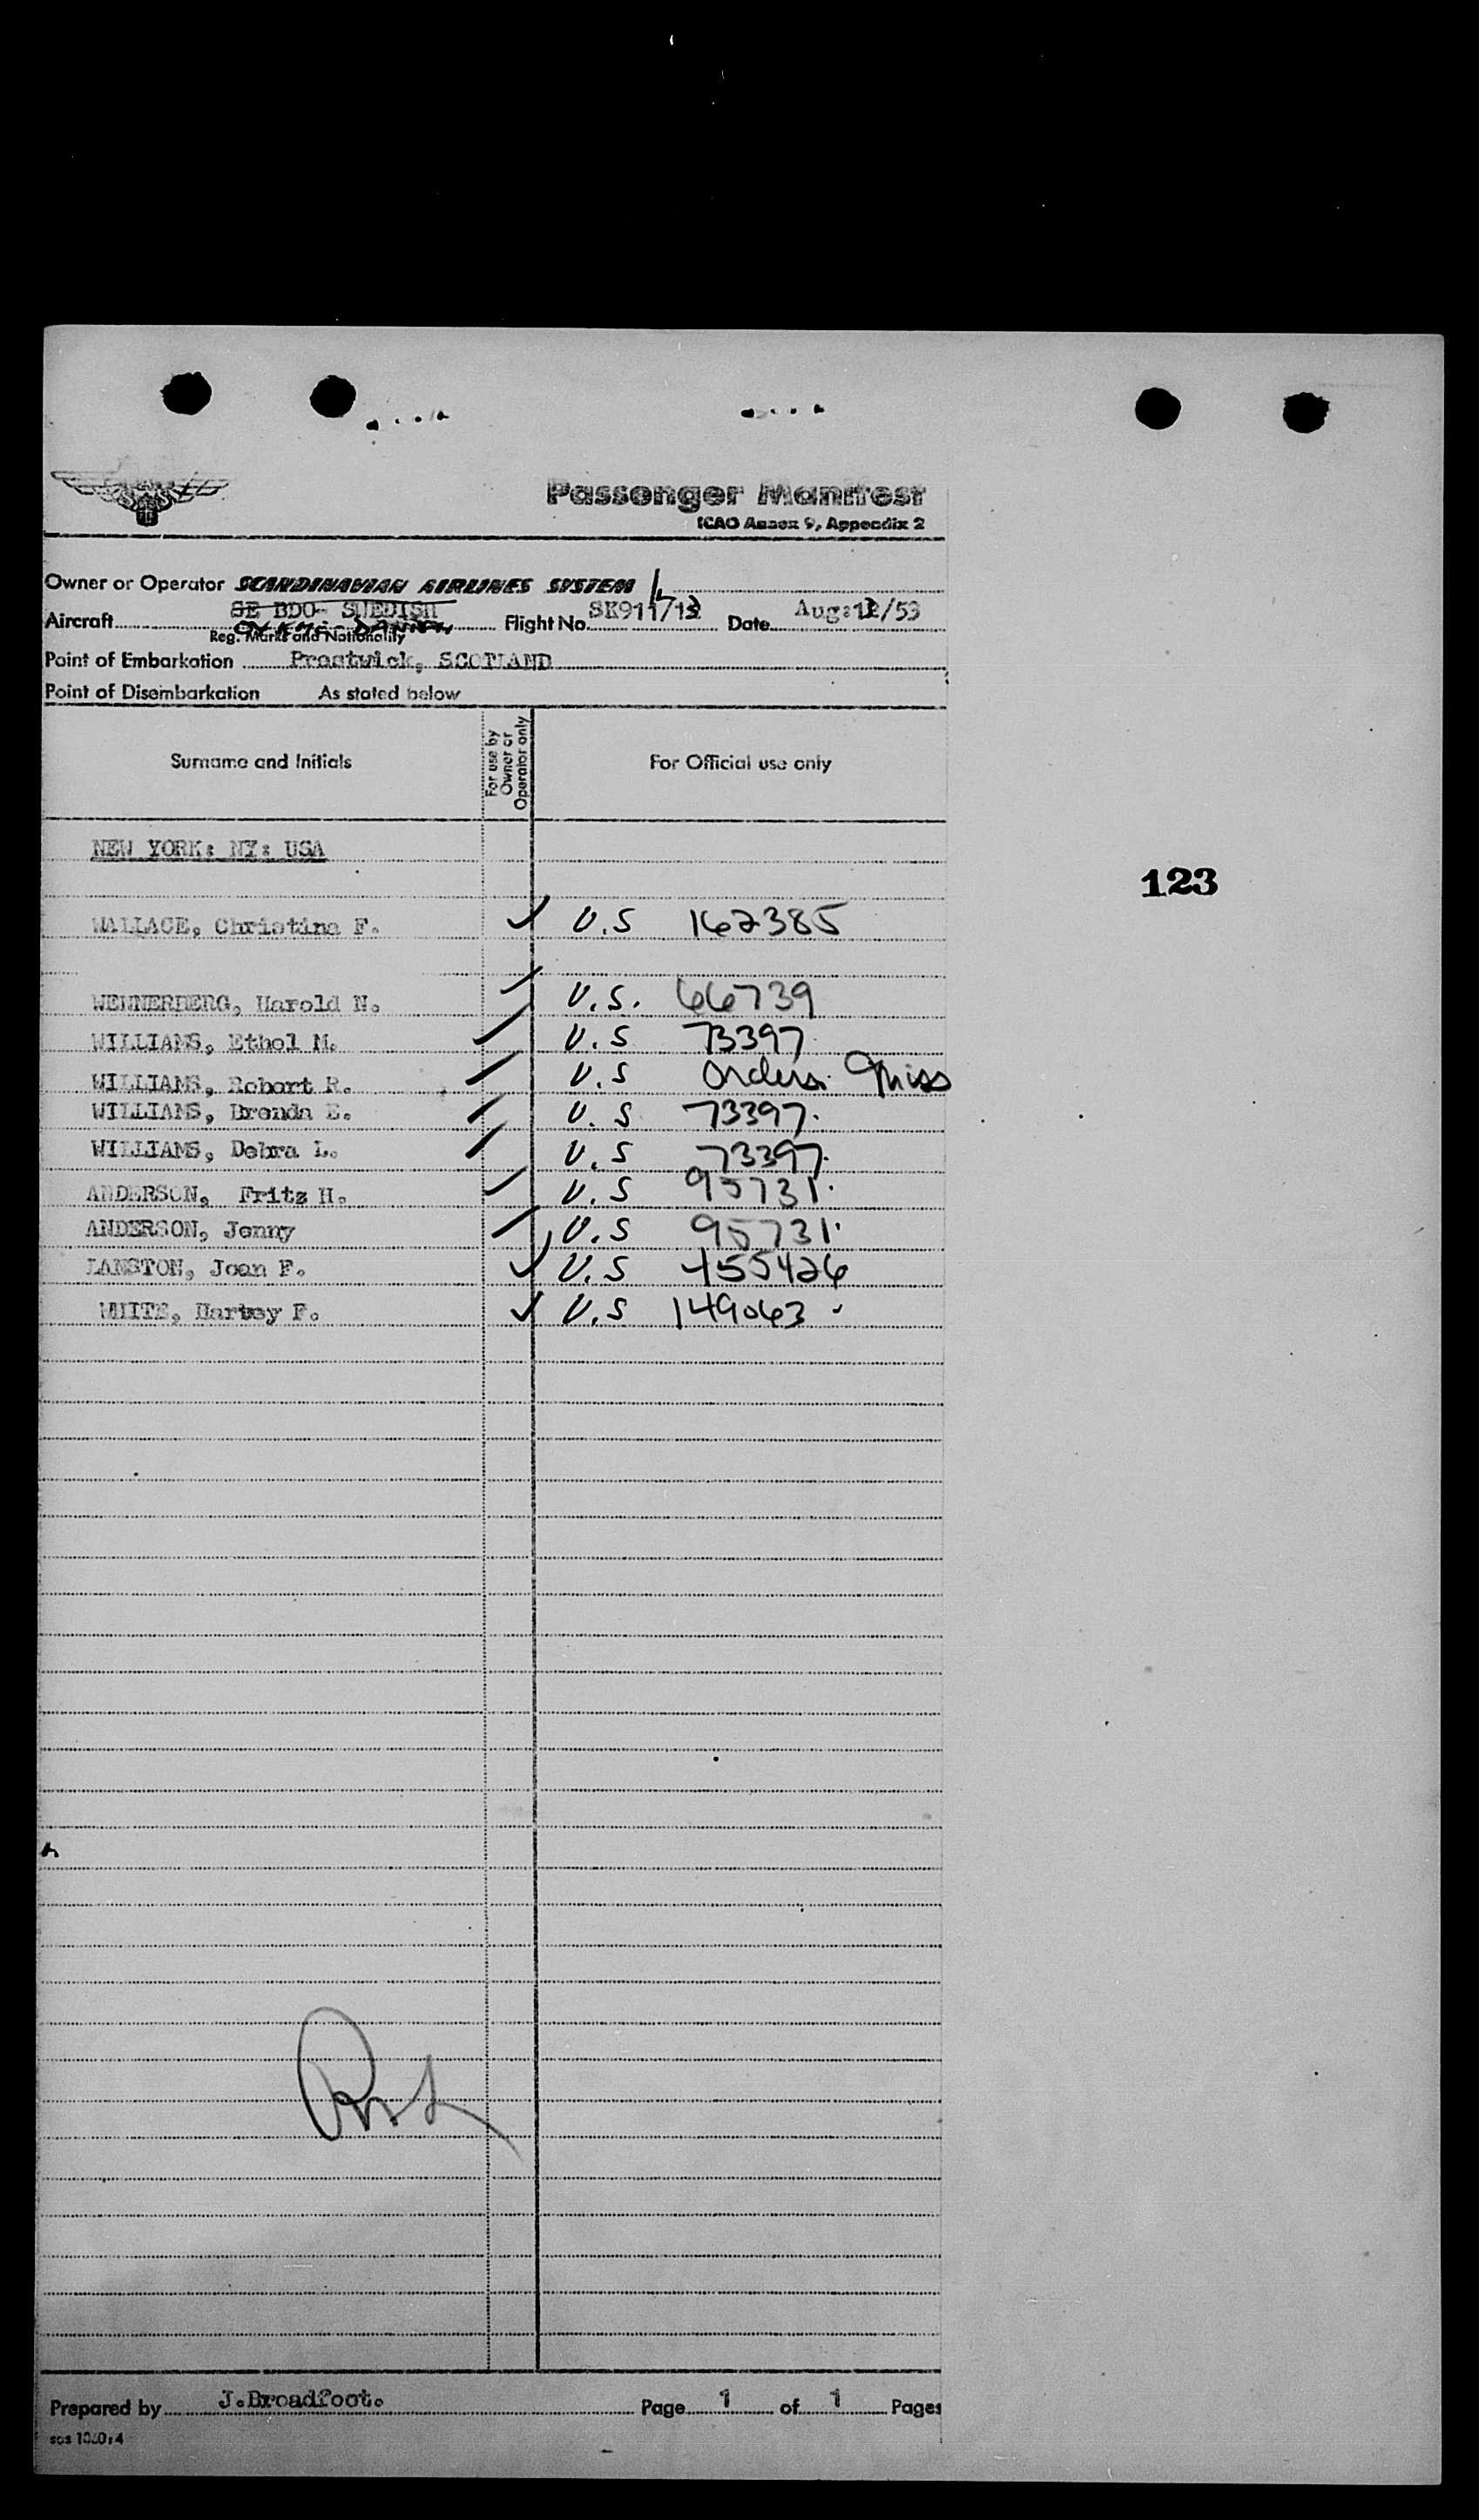 Passenger Manifest
ICAO Annex 9, Appendix 2
Owner or Operator SCANDINAVIAN AIRLINES SYSTEM
SE BDO- SWEDISH
Aircraft Flight No. SK911/13 Date Aug:12/53
Reg. Marks and Nationality
Point of Embarkation Prestwick, SCOTLAND
Point of Disembarkation As stated below
Surname and Initials
For use by Owner or Operator only
For Official use only
NEW YORK: NY: USA
123
WALLACE, Christina F. U.S 162385
WENNERBERG, Harold N. U.S. 66739
WILLIAMS, Ethel M. U.S 73397
WILLIAMS, Robert R. U.S Orders
WILLIAMS, Brenda E. U.S 73397.
WILLIAMS, Debra L. U.S 73397.
ANDERSON, Fritz H. U.S 95731.
ANDERSON, Jenny U.S 95731.
LANSTON, Joan F. U.S 155426
WHITE, Hartey F. U.S 149063
Prepared by J.Broadfoot. Page 1 of 1 Pages